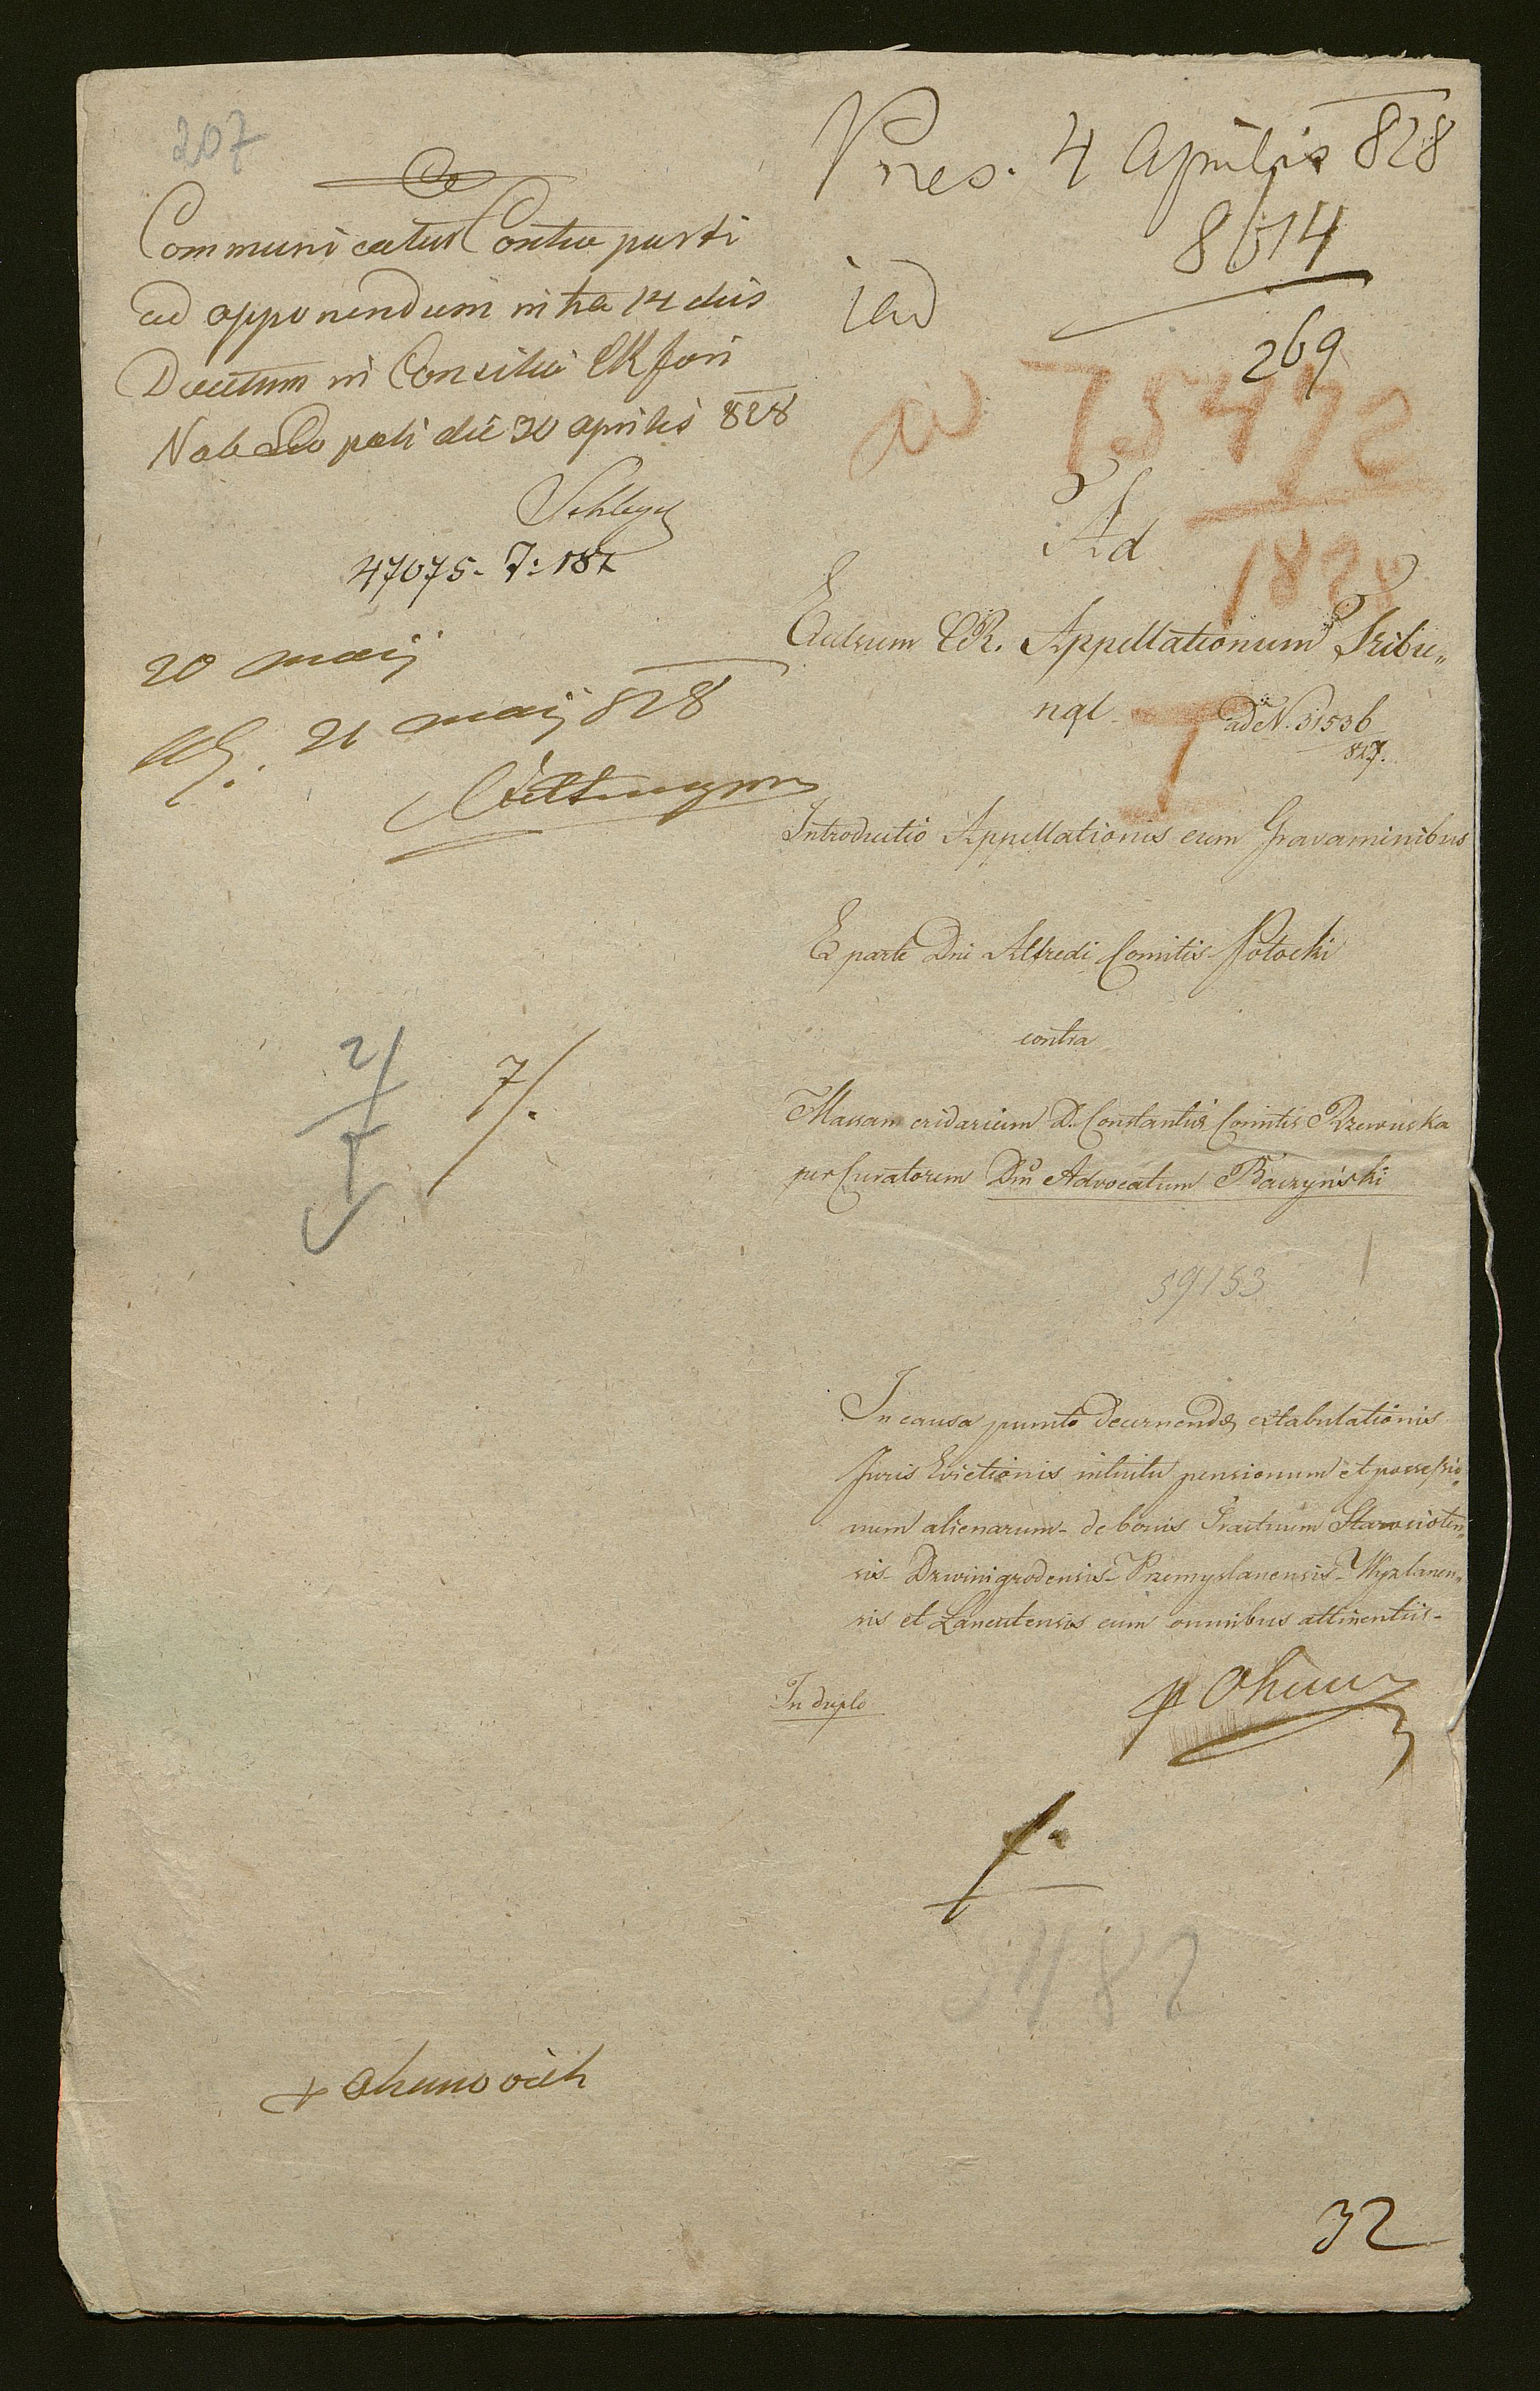 207
Communicatur Contra parti
ad opponendum intra 14 dies
Datum in Consilio CR fori
Nob Leopoli die 30 aprilis 828
Schlegel
47075.
20 maij
21 maij 828
2/ 7/.
Ohanovich
Pres. 4 Aprilis 828
8614
269
ad 75472
1828
Ad
Excelsum CR. Appellationum Tribu„
nal
ad N. 31536
827.
Introductio Appellationis cum Gravaminibus
Ex parte Dni Alfredi Comitis Potocki
contra
Massam cridariam D. Constantiæ Comitis Rzewuska
per Curatorem Dnum Advocatum Baczyński
59153
In causa puncto decernendæ extabulationis
Juris Evictionis intuitu pensionum et possessio„
num alienarum de bonis Tractuum Starosioten„
sis Dzwinigrodensis Przemyslanensis Wyzlanen„
sis et Lancutensis cum omnibus attinentiis
In duplo
482
32